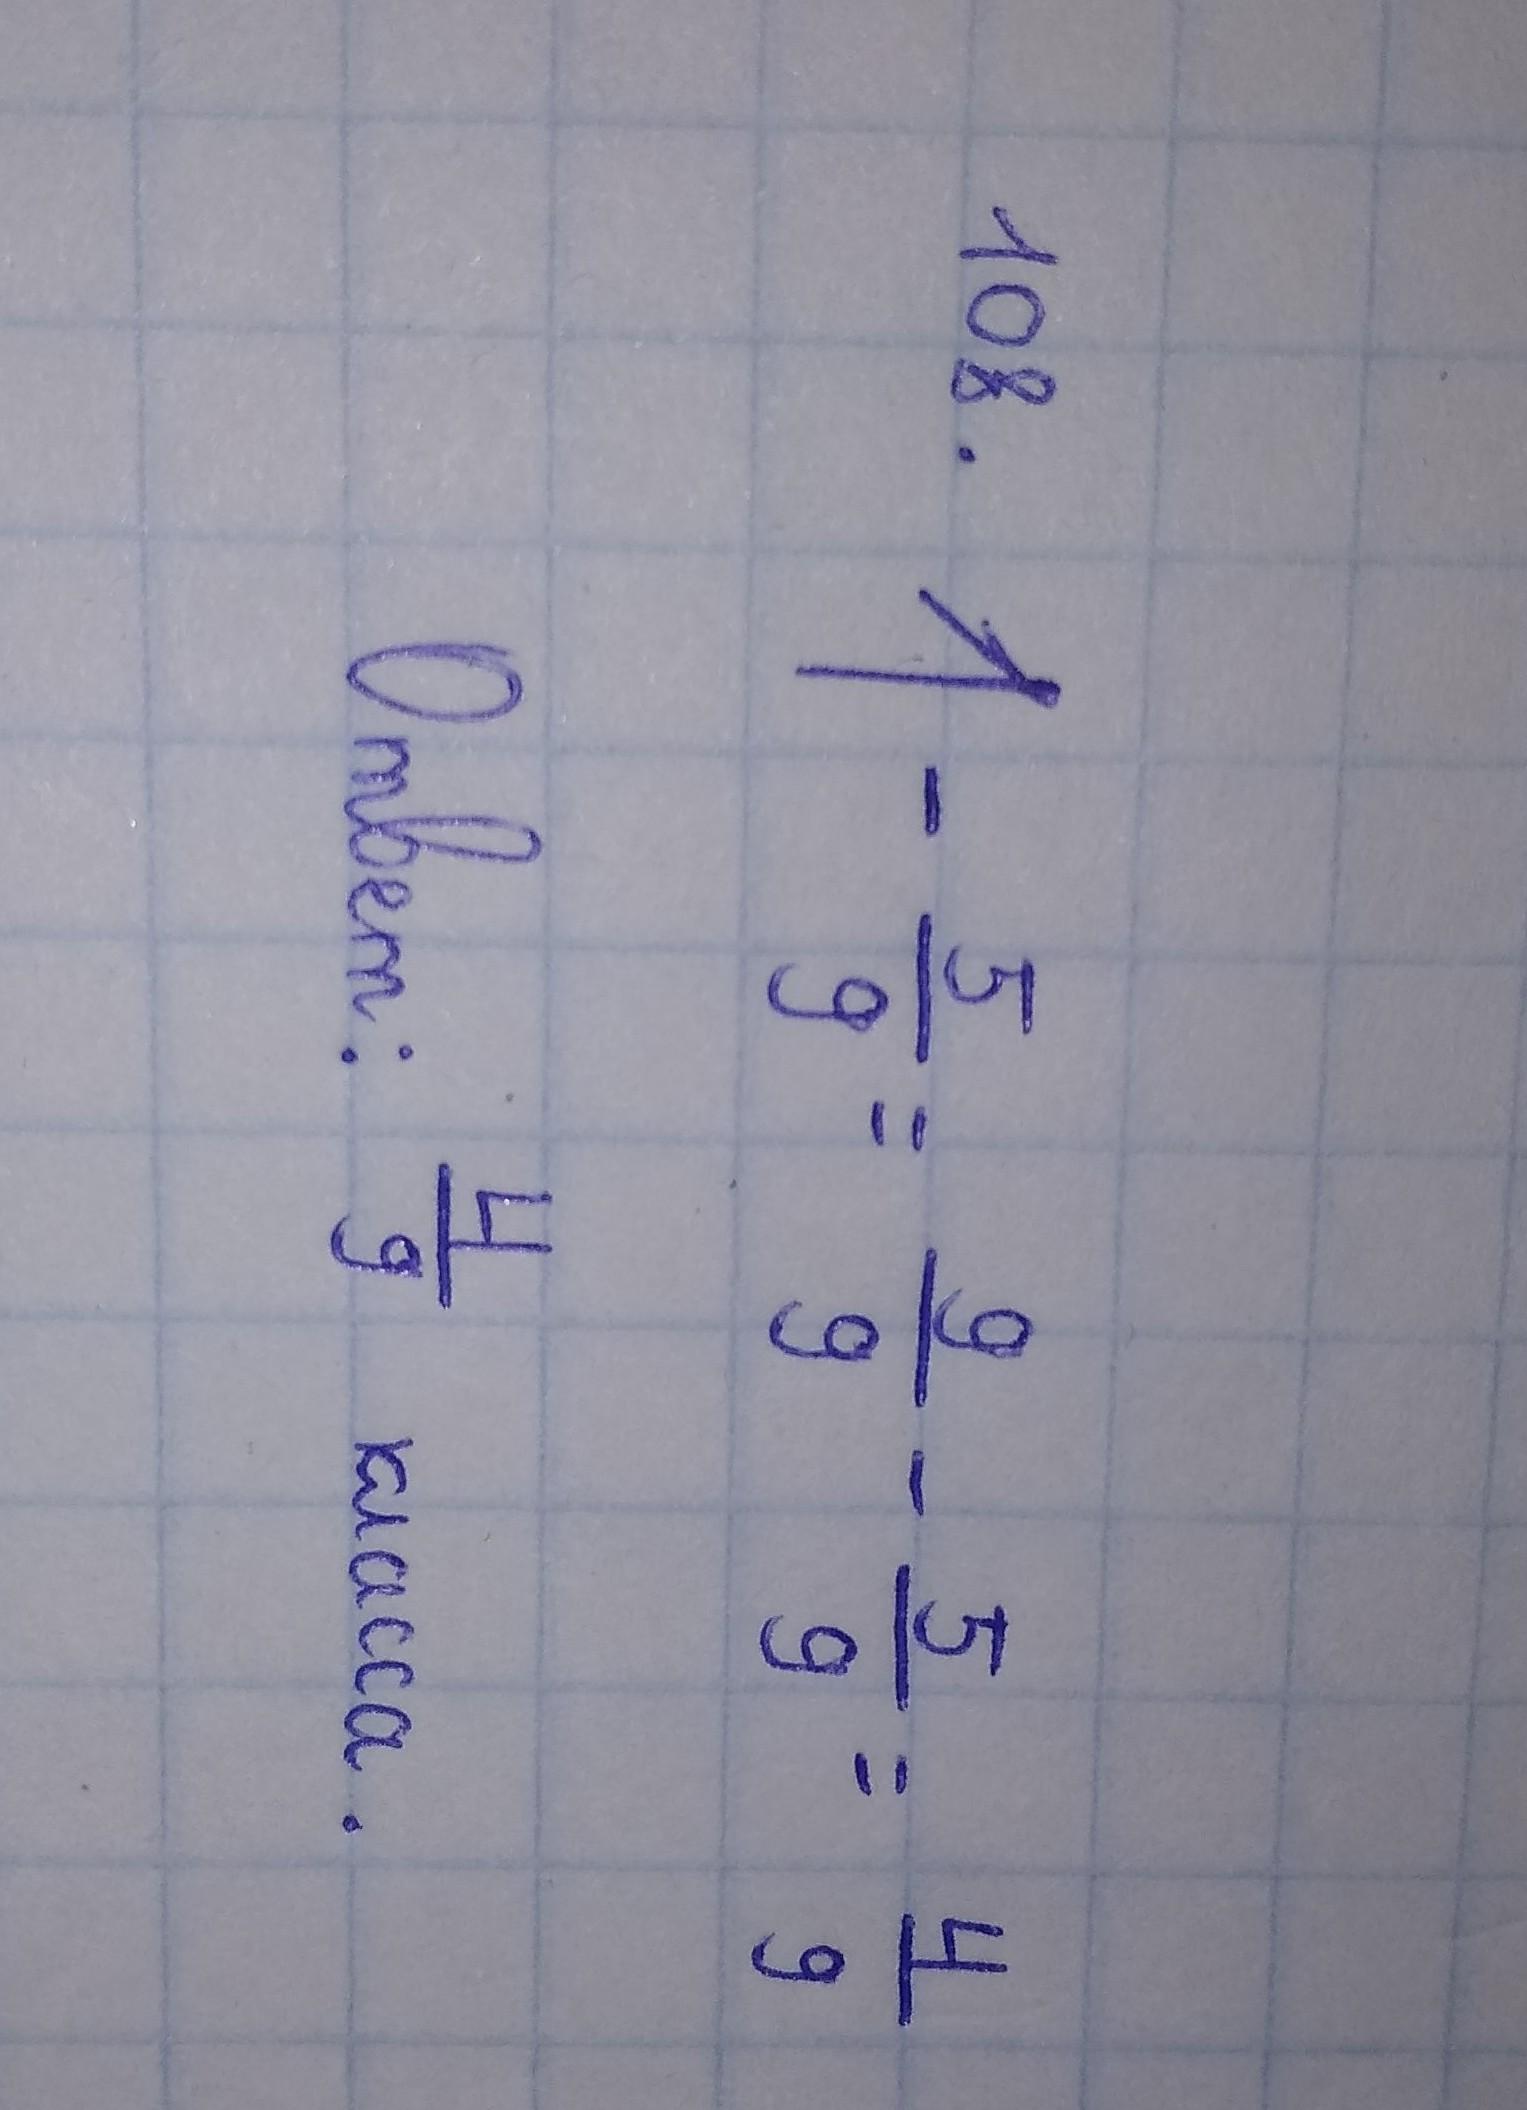 108. 1 - 5/9 = 9/9 - 5/9 = 4/9
Ответ: 4/9 класса.